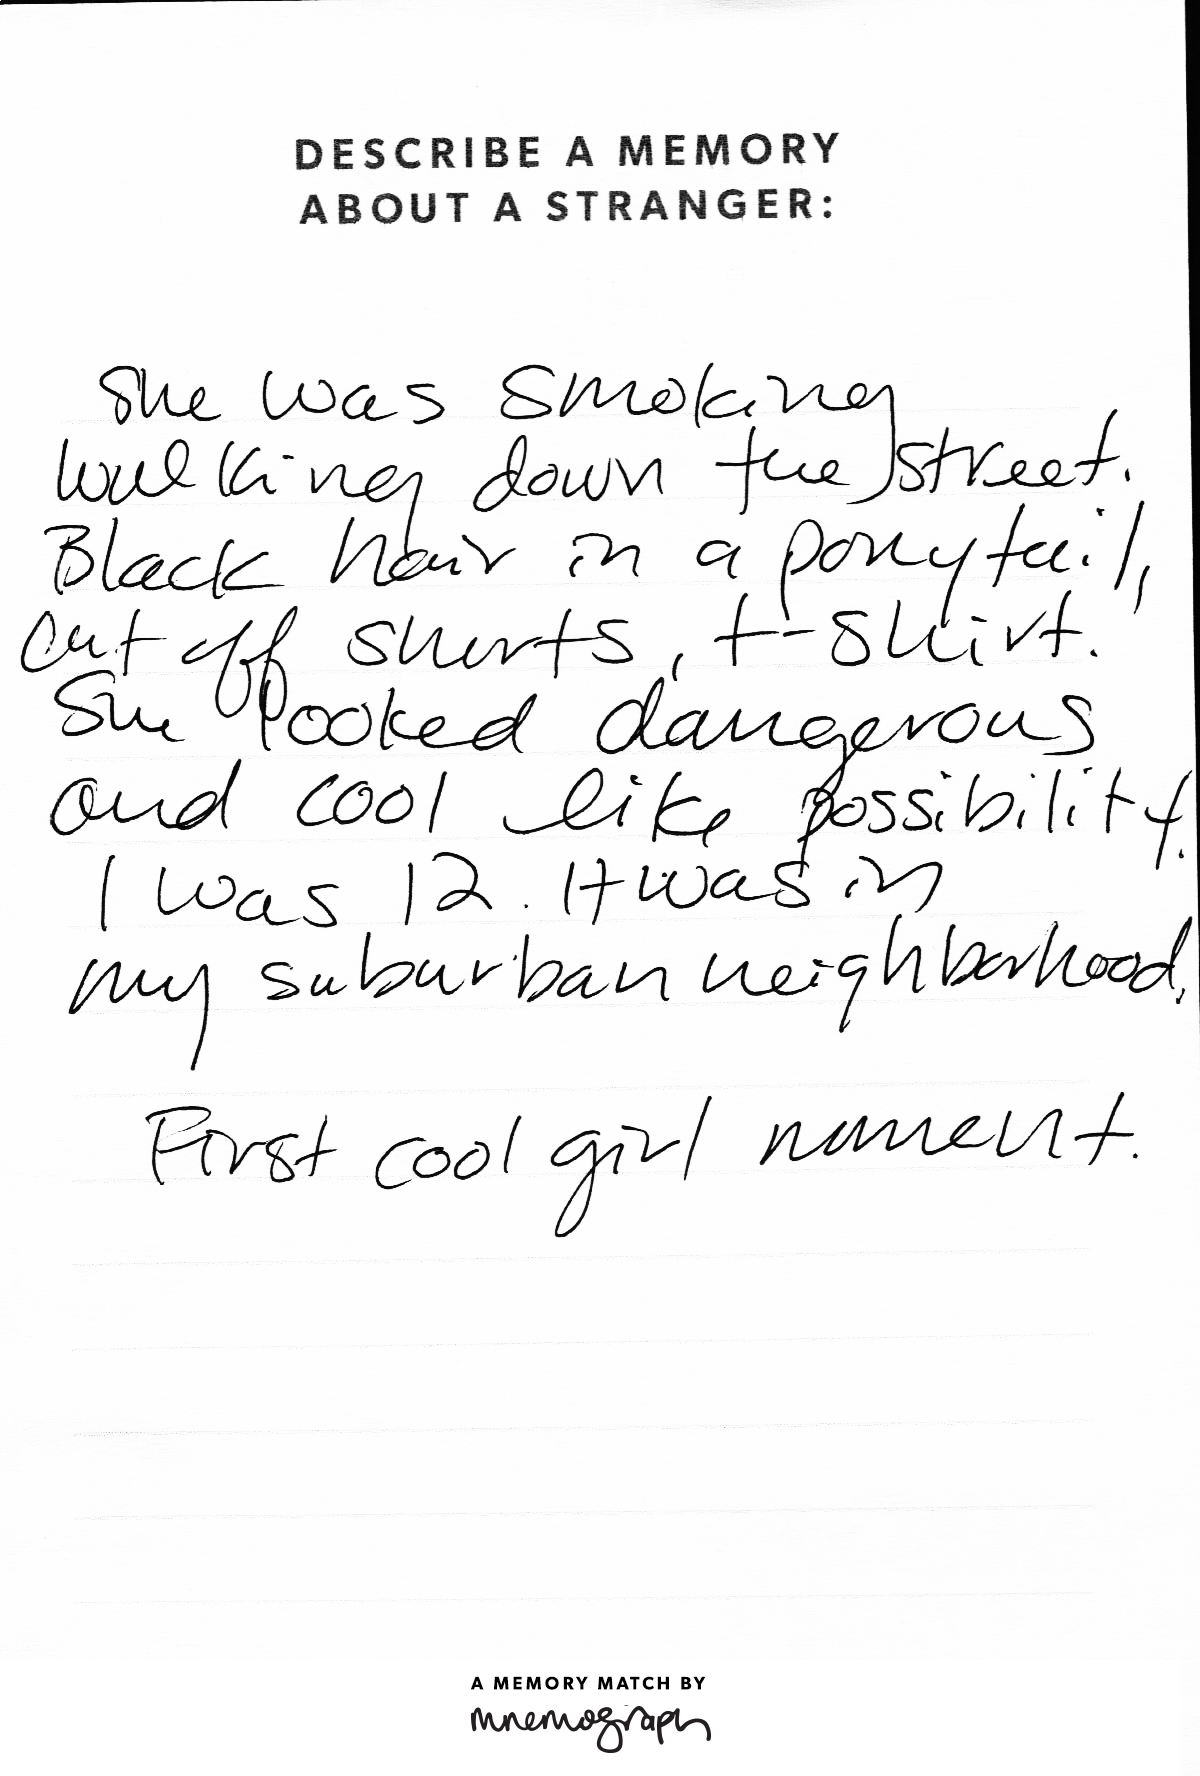 DESCRIBE A MEMORY
ABOUT A STRANGER:
She was smoking
walking down the street.
Black hair in a ponytail,
cut off shorts, t-shirt.
She looked dangerous
and cool like possibility.
I was 12. It was in
my suburban neighborhood.
First cool girl moment.
A MEMORY MATCH BY
mnemograph